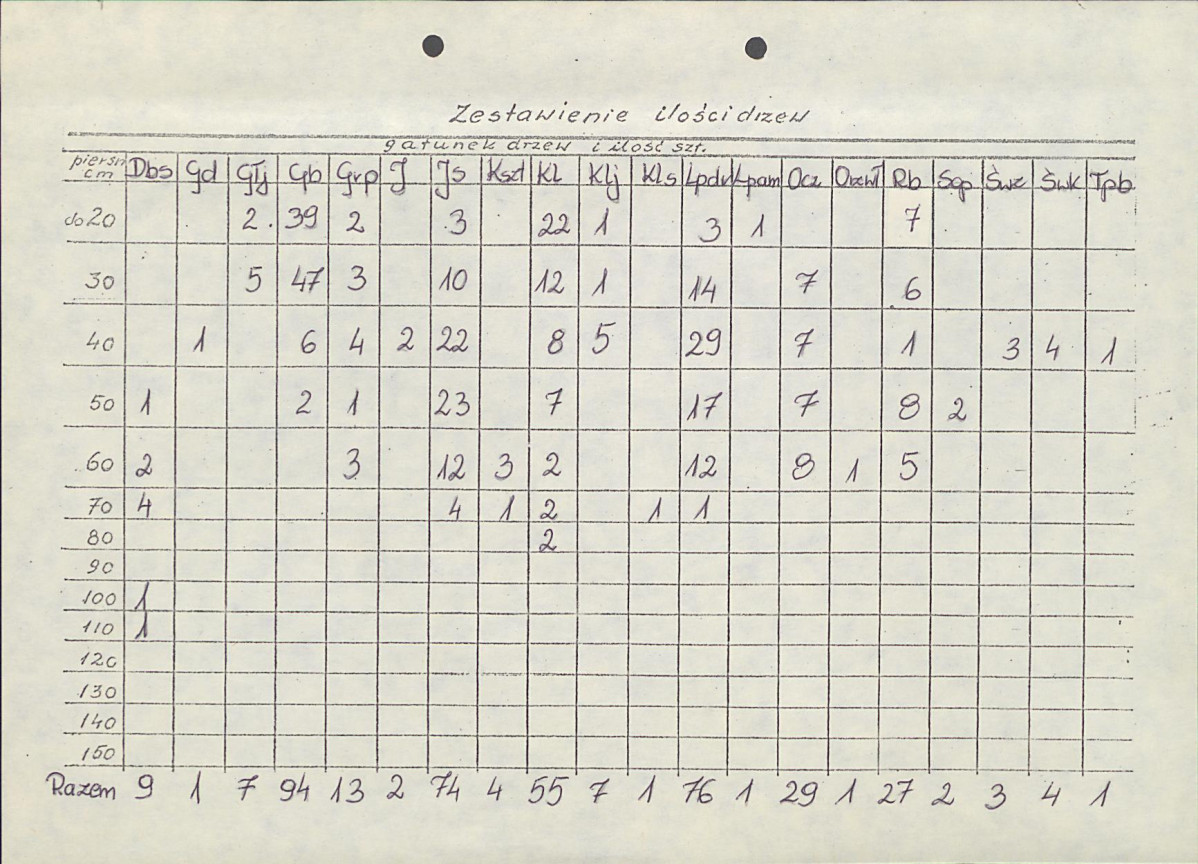 Zestawienie ilości drzew
gatunek drzew i ilość szt.
pierśn cm Dbs Gd Głj Gb Grp J Js Kszt Kl Klj Kls Lpdr Lpam Ocz Orzwł Rb Sop Śwz Świk Tpb
do 20 2 39 2 3 22 1 3 1 7
30 5 47 3 10 12 1 14 7 6
40 1 6 4 2 22 8 5 29 7 1 3 4 1
50 1 2 1 23 7 17 7 8 2
60 2 3 12 3 2 12 8 1 5
70 4 4 1 2 1 1
80 2
90
100 1
110 1
120
130
140
150
Razem 9 1 7 94 13 2 74 4 55 7 1 76 1 29 1 27 2 3 4 1